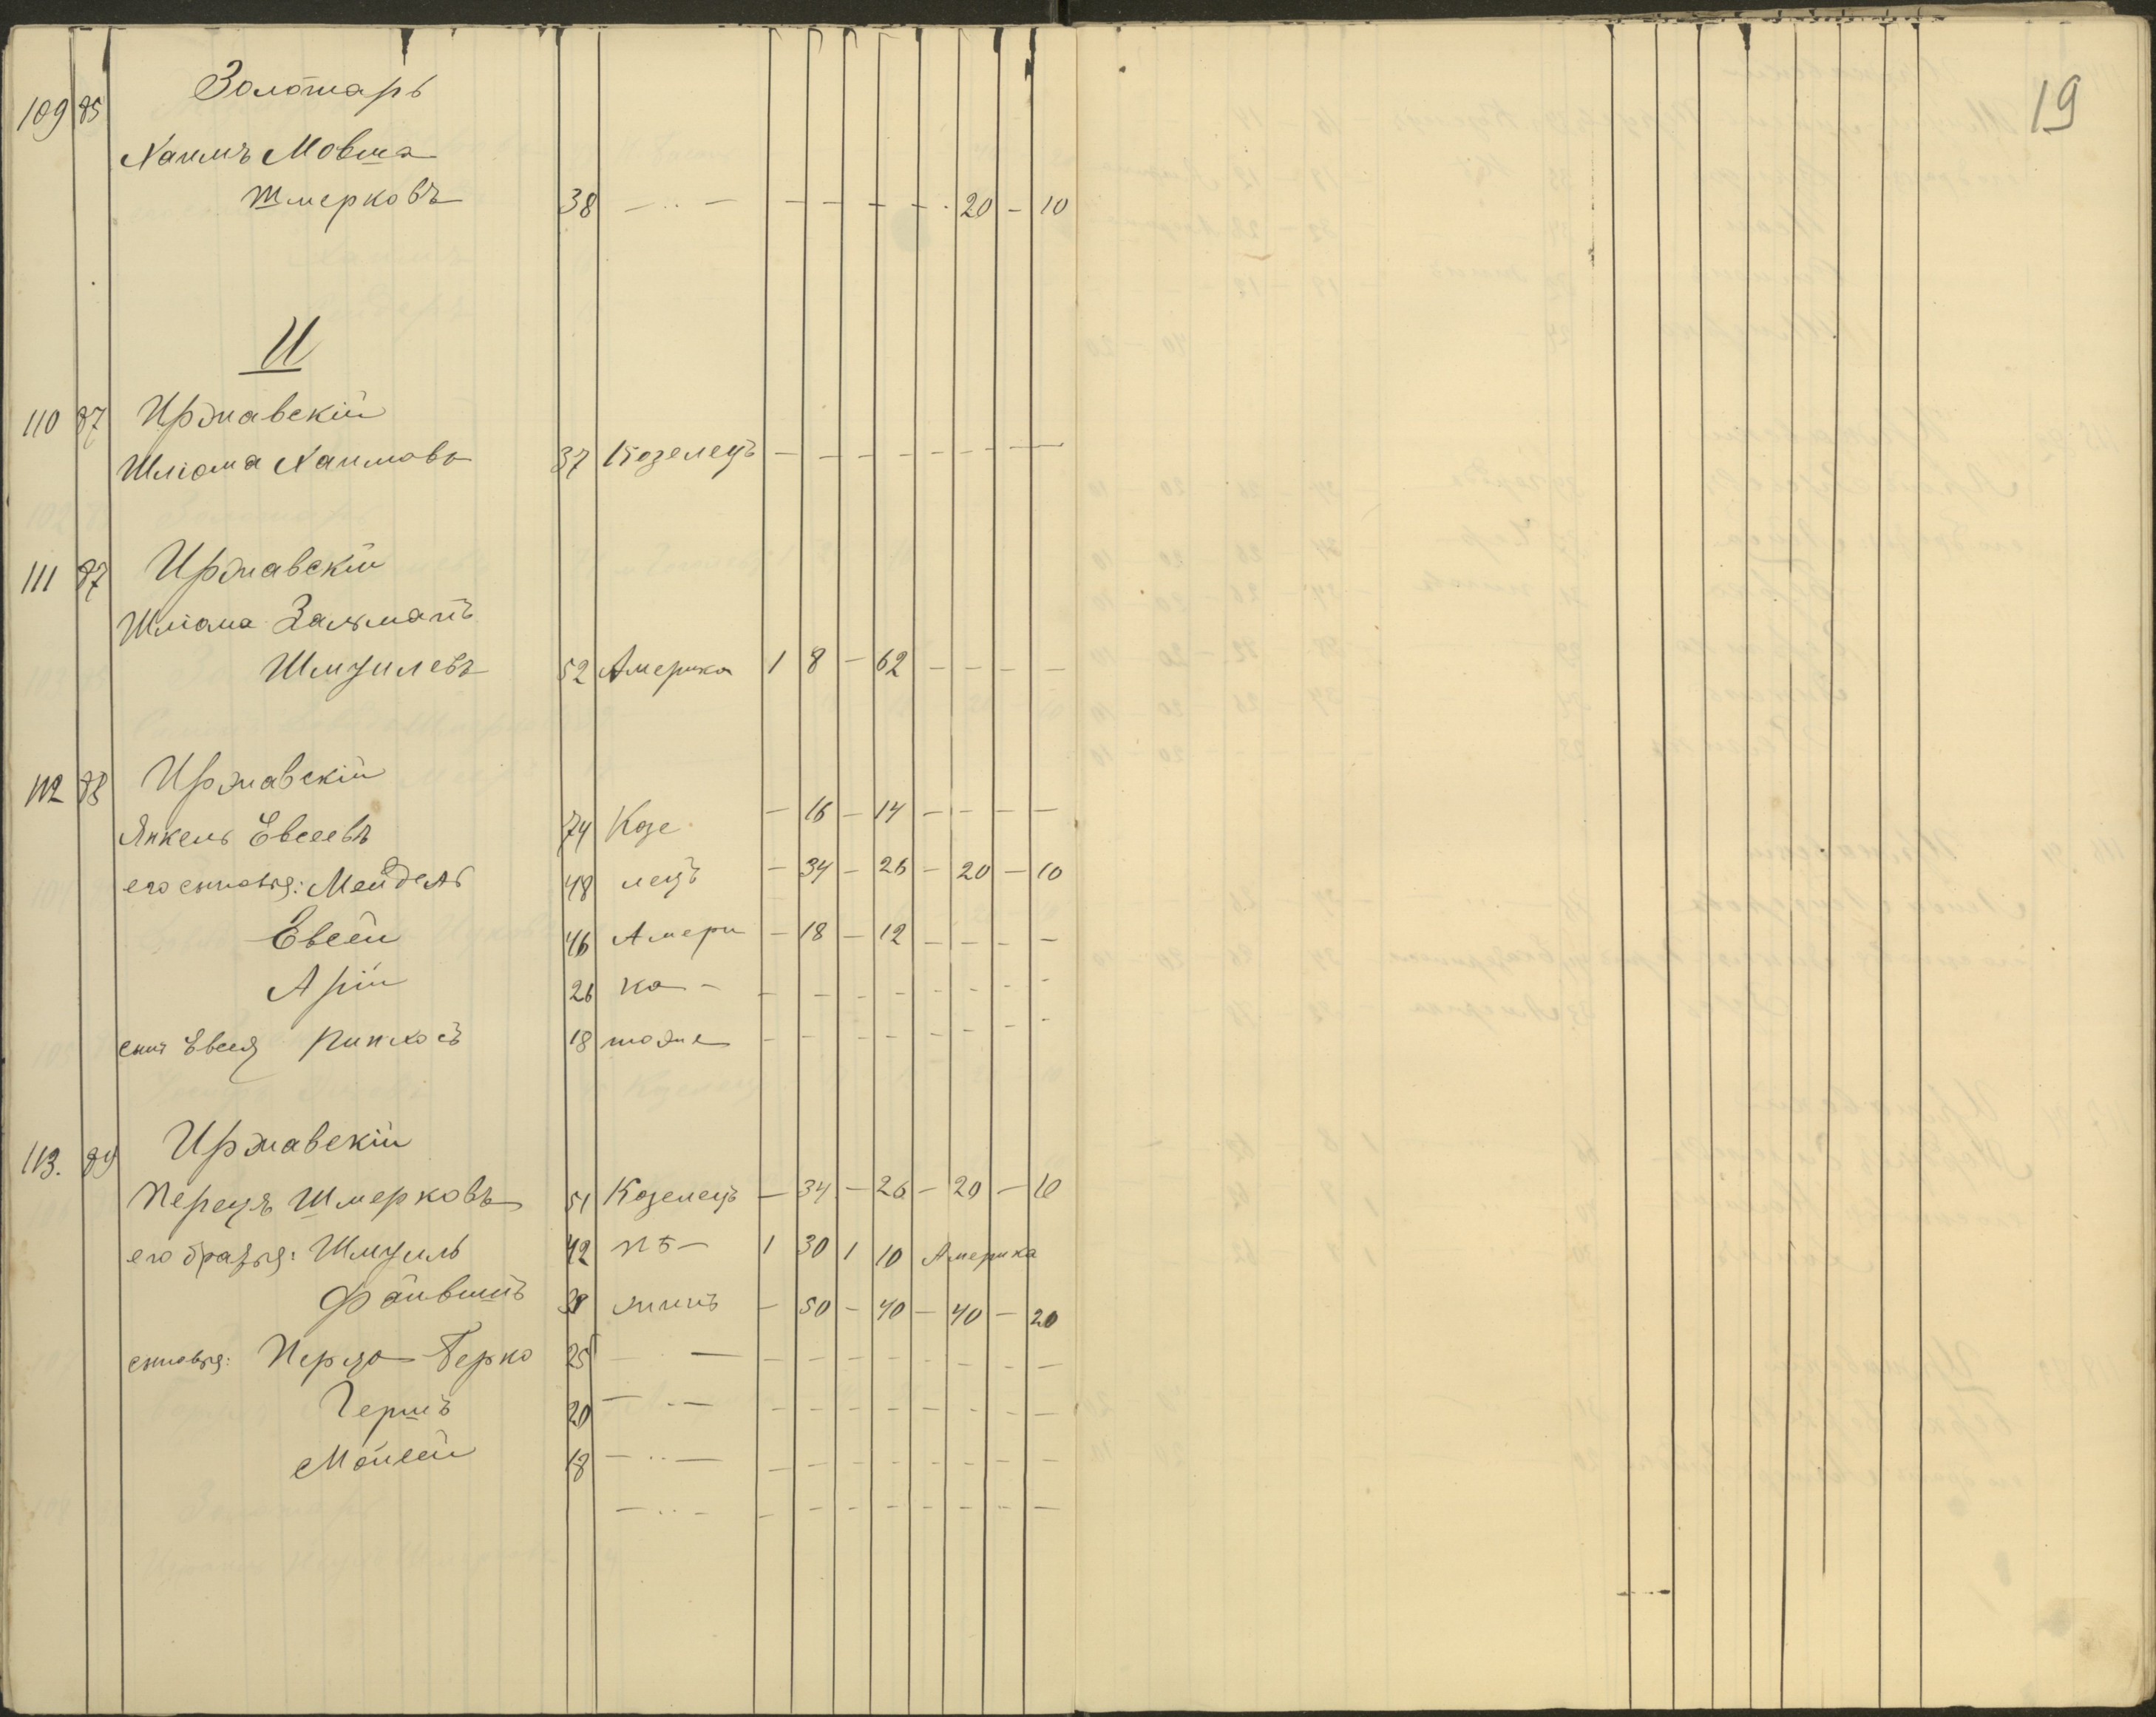 19
Золотарь
109 85
Хаимъ Мовша
Шмерковъ 38 — .. — — — — — - . 20 — 10
И
110 87 Иржавскій
Шліома Хаимовъ 37 Козелецъ — — — — — — — —
111 87 Иржавскій
Шліома Залманъ
Шмуилевъ 52 Америка 1 8 — 62 — — — —
112 88 Иржавскій
Янкель Евсеевъ 74 Козе — 16 — 14 — — — —
его сыновья: Мендель 48 лецъ — 34 — 26 — 20 — 10
Евсей 46 Амери — 18 — 12 — — — —
Арій 26 ка — — — — — — — — —
сынъ Евсея Пинхосъ 18 тоже — — — — — — — —
113. 89 Иржавскій
Перецъ Шмерковъ 51 Козелецъ — 34 — 26 — 20 — 10
его братья: Шмуиль 42 1 30 1 10 Америка
Файвишъ 38 — 50 — 40 — 40 — 20
сыновья: Берко 25 — — — — — — — — —
Гершъ 20 — . — — — — — — — — —
Мойсей 18 — .. — — — — — — — — —
— .. — — — — — — — — —